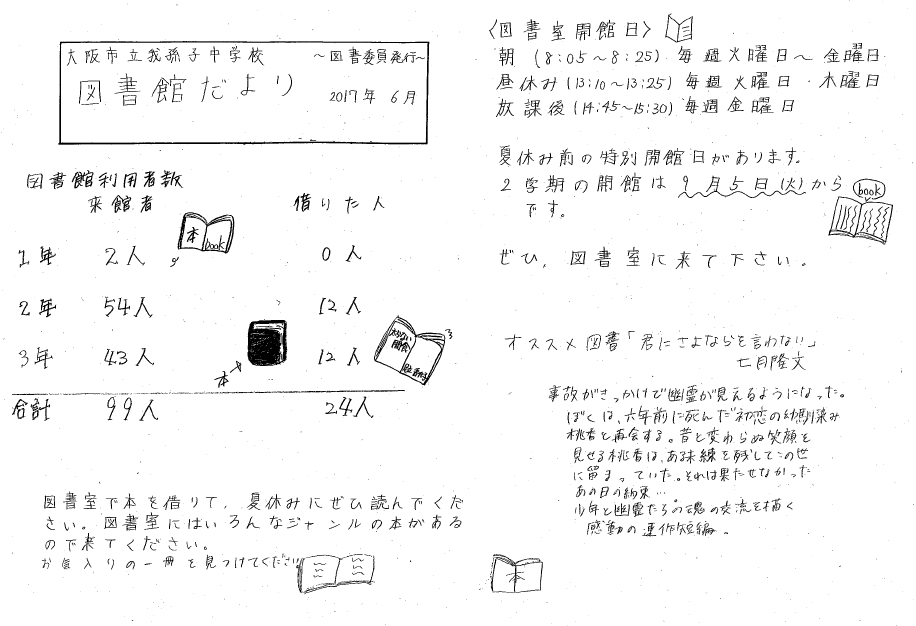 大阪市立我孫子中学校 ～図書委員発行～
図書館だより
2017年 6月
図書館利用者数
来館者 借りた人
1年 2人 0人
2年 54人 12人
3年 43人 12人
合計 99人 24人
本 book
本
図書室で本を借りて、夏休みにぜひ読んでくだ
さい。図書室にはいろんなジャンルの本がある
ので来てください。
お気入りの一冊を見つけてください
〈図書室開館日〉
朝 (8:05～8:25) 毎週火曜日～金曜日
昼休み(13:10～13:25) 毎週火曜日・木曜日
放課後(14:45～15:30) 毎週金曜日
夏休み前の特別開館日があります。
2学期の開館は9月5日(火)から
です。
book
ぜひ、図書室に来て下さい。
オススメ図書「君にさよならを言わない」
七月隆文
事故がきっかけで幽霊が見えるようになった。
ぼくは、六年前に死んだ初恋の幼馴染み
桃香と再会する。昔と変わらぬ笑顔を
見せる桃香は、ある未練を残してこの世
に留まっていた。それは果たせなかった
あの日の約束…
少年と幽霊たちの魂の交流を描く
感動の連作短編。
本